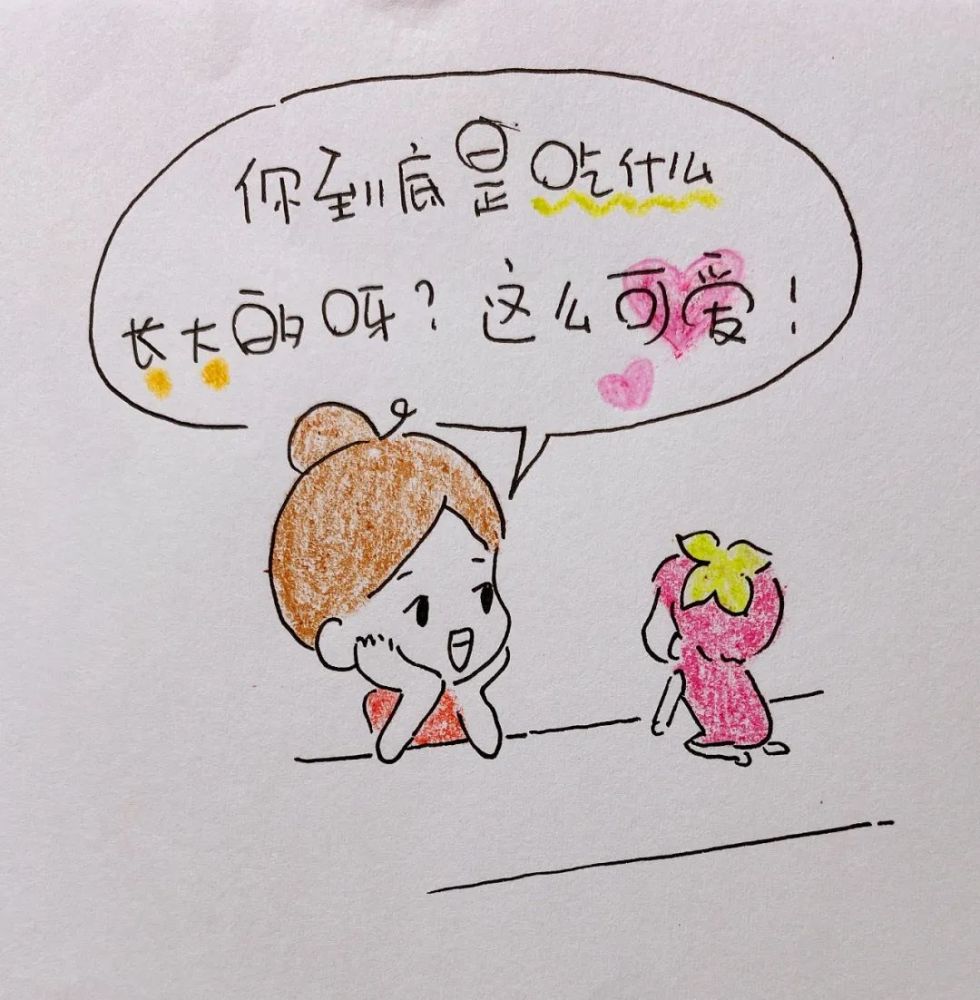 你到底是吃什么
长大的呀?这么可爱!